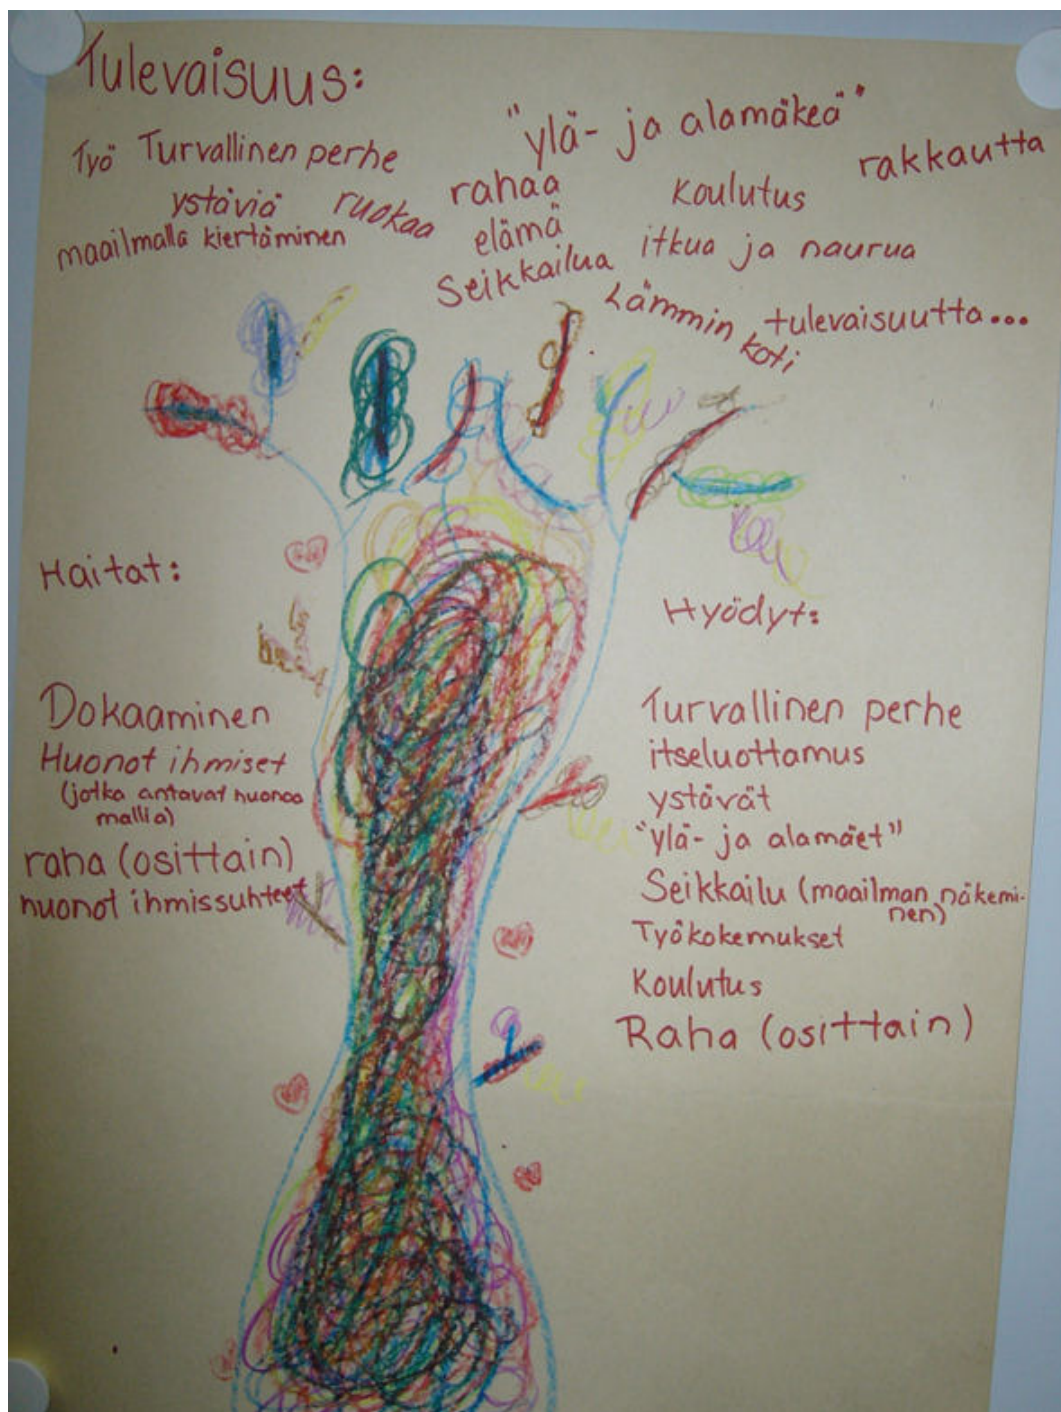 Tulevaisuus:
"ylä- ja alamäkeä"
Työ Turvallinen perhe
rakkautta
ystäviä ruokaa rahaa Koulutus
maailmalla kiertäminen elämä itkua ja naurua
Seikkailua Lämmin koti tulevaisuutta...
Haitat:
Dokaaminen
Huonot ihmiset
(jotka antavat huonoa
mallia)
raha (osittain)
huonot ihmissuhteet
Hyödyt:
Turvallinen perhe
itseluottamus
ystävät
"Ylä- ja alamäet"
Seikkailu (maailman näkemi-
nen)
Työkokemukset
Koulutus
Raha (osittain)